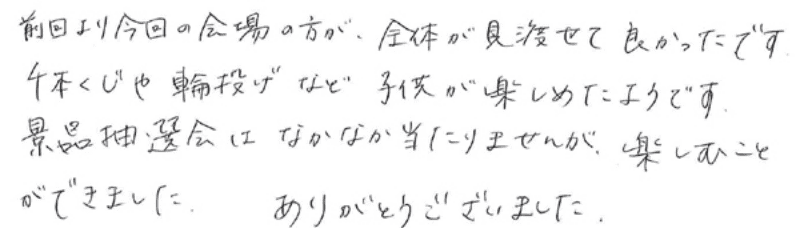 前回より今回の会場の方が、全体が見渡せて良かったです.
千本くじや輪投げなど子供が楽しめたようです.
景品抽選会はなかなか当たりませんが、楽しむこと
ができました. ありがとうございました.